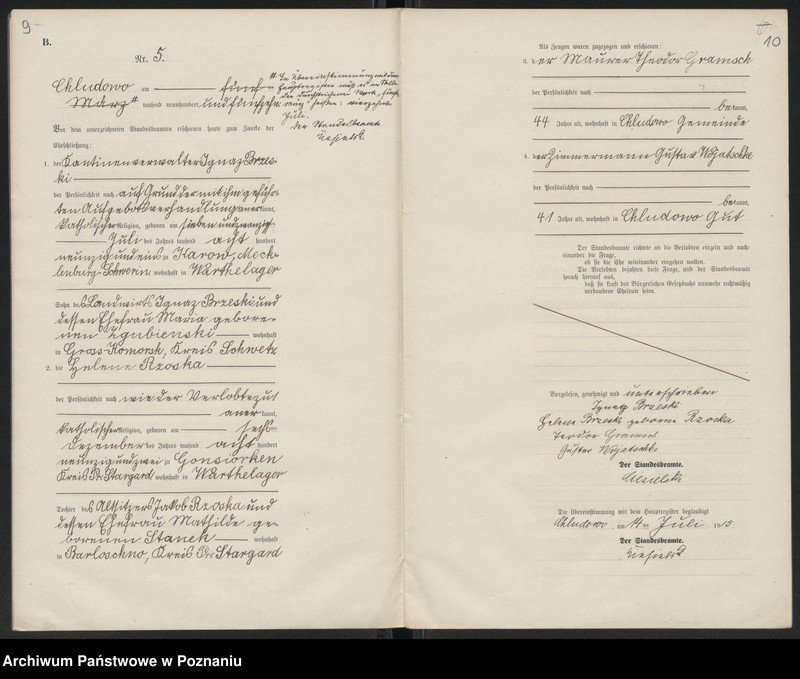 9
B.
Nr. 5.
Chludowo am fünf
März # tausend neunhundert und fünfzehn
# In Übereinstimmung mit dem
Hauptregister muß es an Stelle
der durchstrichenen Worte „fünf
März" heißen: vierzehn
Juli.
Der Standesbeamte
Vor dem unterzeichneten Standesbeamten erschienen heute zum Zwecke der
Eheschließung:
1. der Kantinenverwalter Ignaz Brzes-
ki
der Persönlichkeit nach auf Grund der mit ihm geführ-
ten Aufgebotsverhandlung aner kannt,
katholischer Religion, geboren am sieben und zwanzig
Juli des Jahres tausend acht hundert
neunzig und eins zu Karow, Meck-
lenburg-Schwerin, wohnhaft in Warthelager
Sohn des Landwirts Ignaz Brzeski und
dessen Ehefrau Maria gebore-
nen Zgubienski wohnhaft
in Gross-Komorsk, Kreis Schwetz
2. die Helene Rzoska
der Persönlichkeit nach wie der Verlobte zu 1
aner kannt,
katholischer Religion, geboren am sechs
Dezember des Jahres tausend acht hundert
neunzig und zwei zu Gonsiorken
Kreis Pr. Stargard wohnhaft in Warthelager
Tochter des Altsitzers Jakob Rzoska und
dessen Ehefrau Mathilde ge-
borenen Stanek wohnhaft
in Barloschno, Kreis Pr. Stargard
10
Als Zeugen waren zugezogen und erschienen:
3. der Maurer Theodor Gramsch
der Persönlichkeit nach
be kannt,
44 Jahre alt, wohnhaft in Chludowo Gemeinde
4. der Zimmermann Gustav Wojatschke
der Persönlichkeit nach
be kannt,
41 Jahre alt, wohnhaft in Chludowo Gut
Der Standesbeamte richtete an die Verlobten einzeln und nach-
einander die Frage,
ob sie die Ehe miteinander eingehen wollen.
Die Verlobten bejahten diese Frage, und der Standesbeamte
sprach hierauf aus,
daß sie kraft des Bürgerlichen Gesetzbuchs nunmehr rechtmäßig
verbundene Eheleute seien.
Vorgelesen, genehmigt und unterschrieben
Ignatz Brzeski
Helene Brzeski geborene Rzoska
Teodor Gramsch
Gustav Wojatschke
Der Standesbeamte.
Die Übereinstimmung mit dem Hauptregister beglaubigt
Chludowo, am 14ten Juli 1915
Der Standesbeamte.
Archiwum Państwowe w Poznaniu